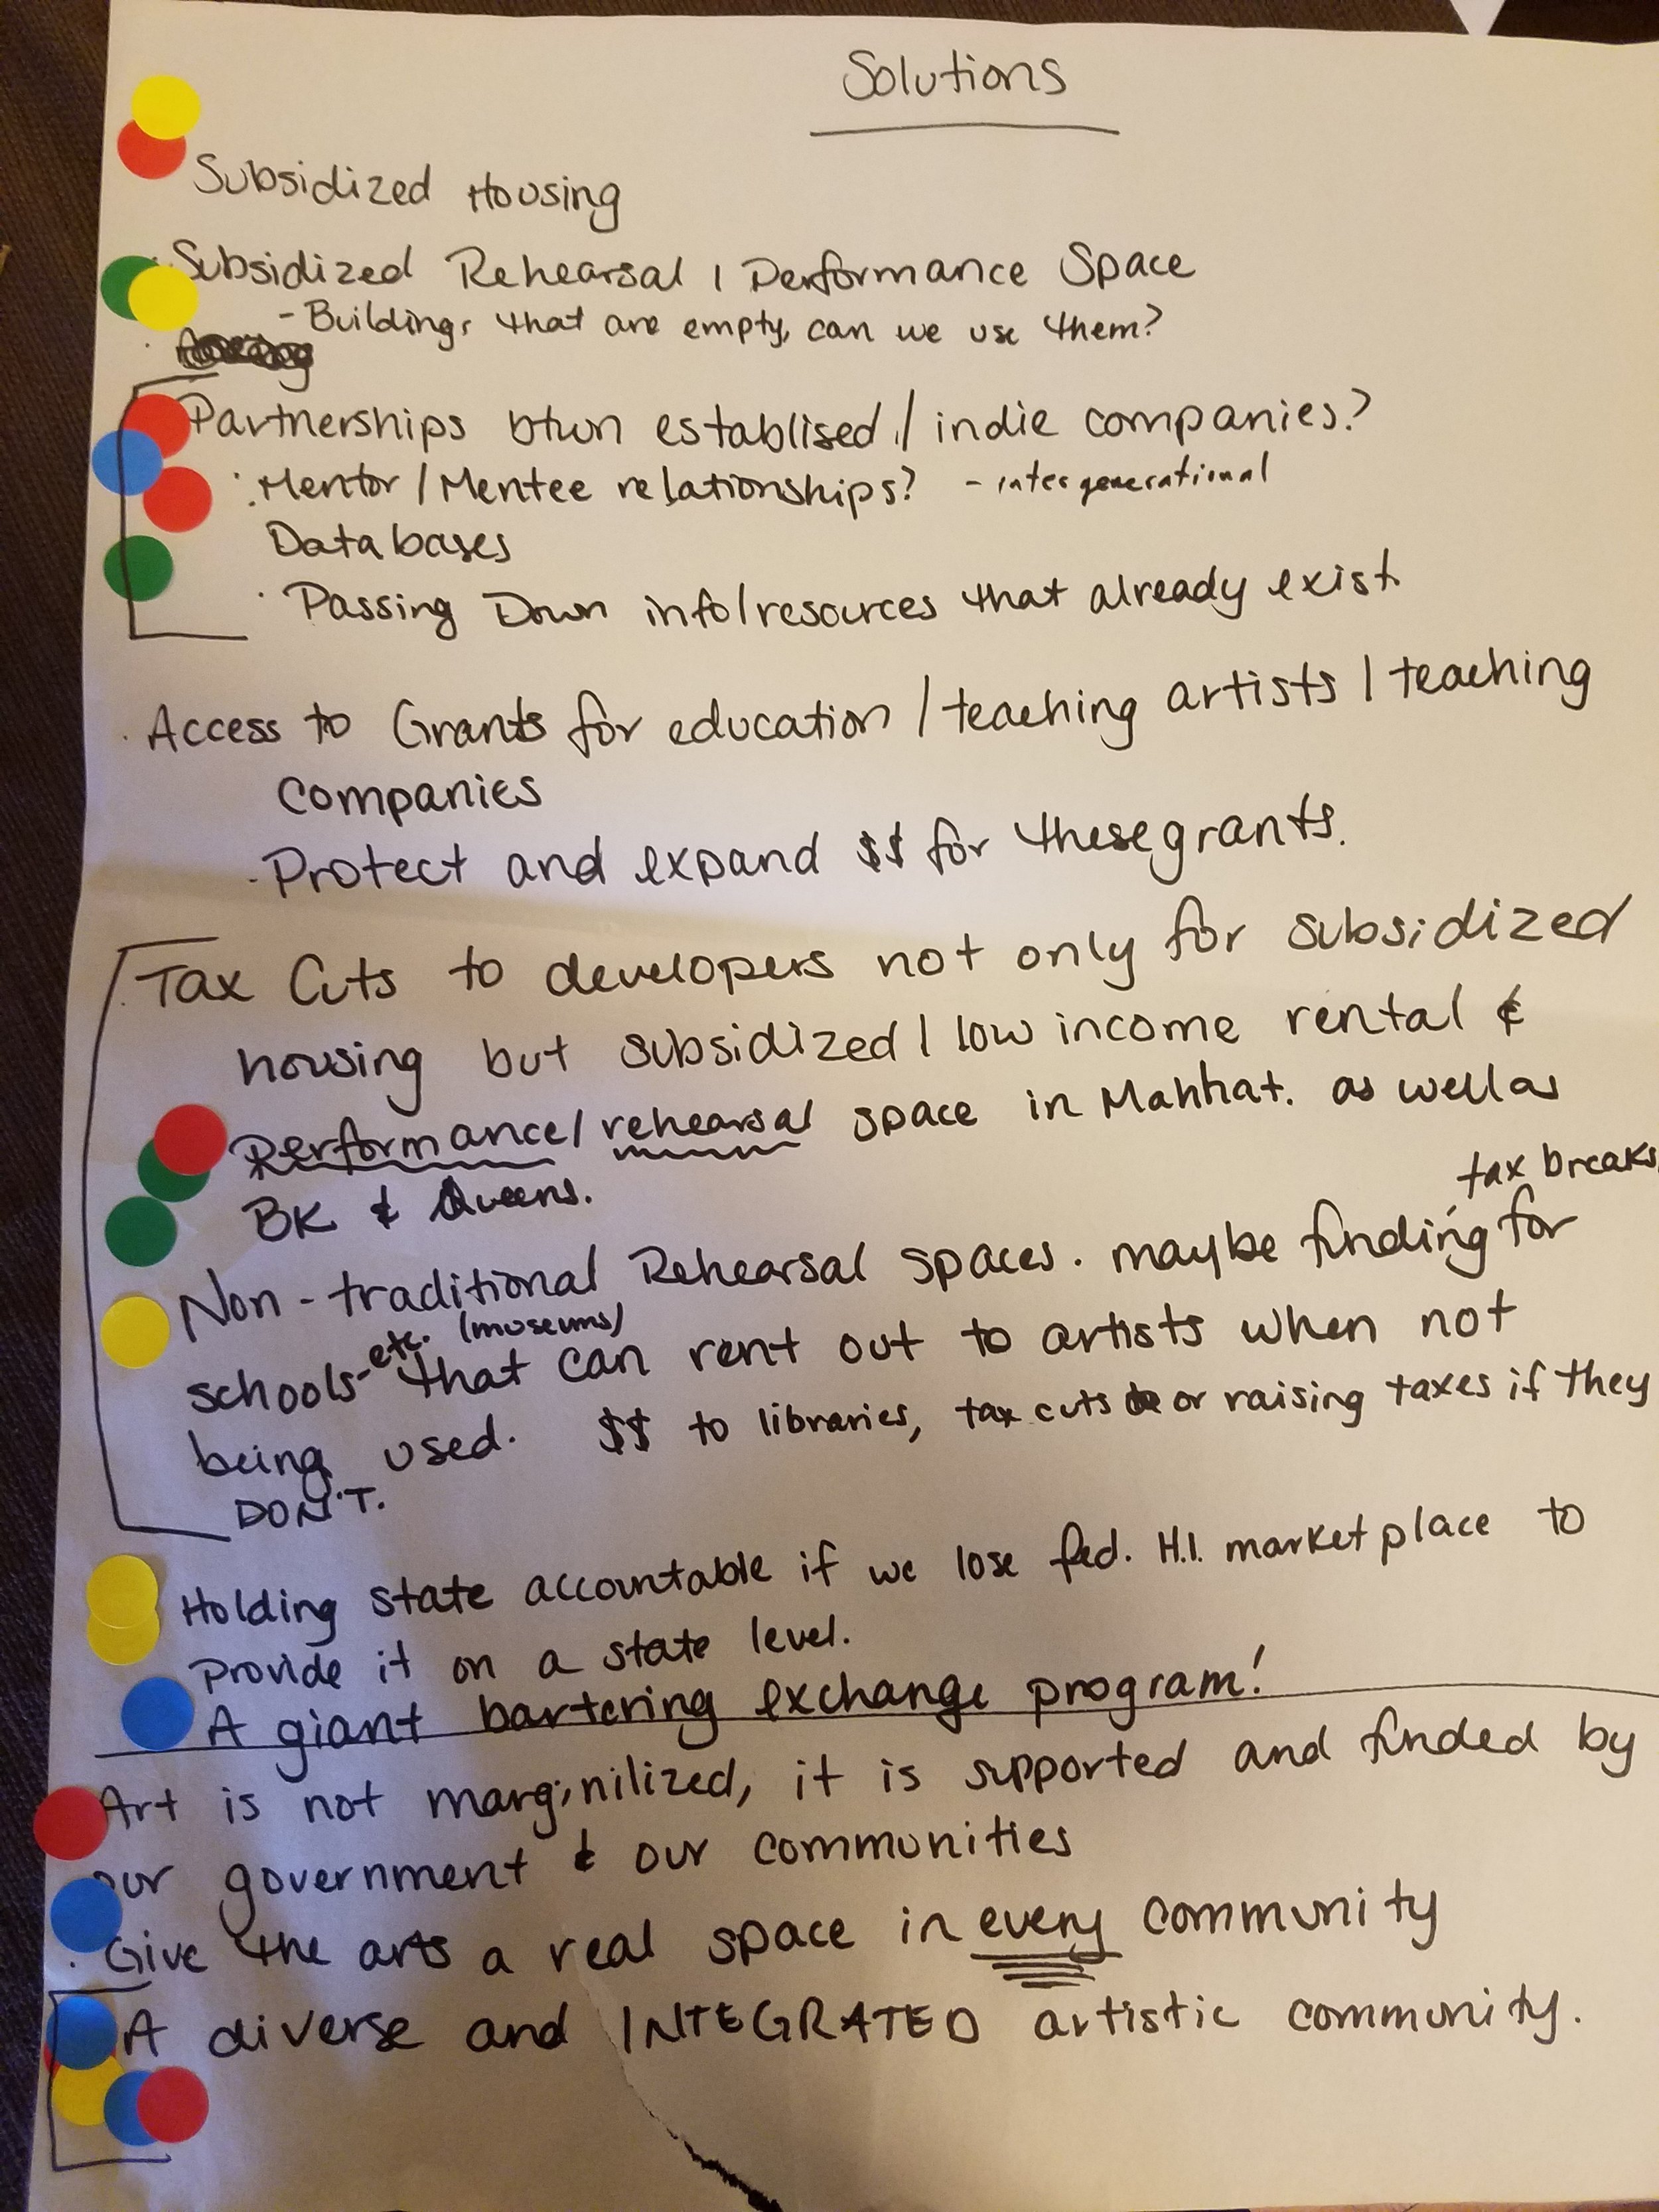 Solutions
Subsidized Housing
· Subsidized Rehearsal / Performance Space
- Buildings that are empty, can we use them?
Partnerships btwn establised / indie companies?
· Mentor / Mentee relationships? - intergenerational
Databases
· Passing Down info/resources that already exist.
· Access to Grants for education / teaching artists / teaching
companies
- Protect and expand $$ for these grants.
· Tax Cuts to developers not only for subsidized
housing but subsidized / low income rental &
Performance/ rehearsal space in Manhat. as well as
BK & Queens.
tax breaks,
Non-traditional Rehearsal spaces. maybe funding for
etc. (museums)
schools- that can rent out to artists when not
being used. $$ to libraries, tax cuts or raising taxes if they
DON'T.
Holding state accountable if we lose fed. H.I. marketplace to
provide it on a state level.
A giant bartering exchange program!
Art is not marginilized, it is supported and funded by
our government & our communities
· Give the arts a real space in every community
A diverse and INTEGRATED artistic community.